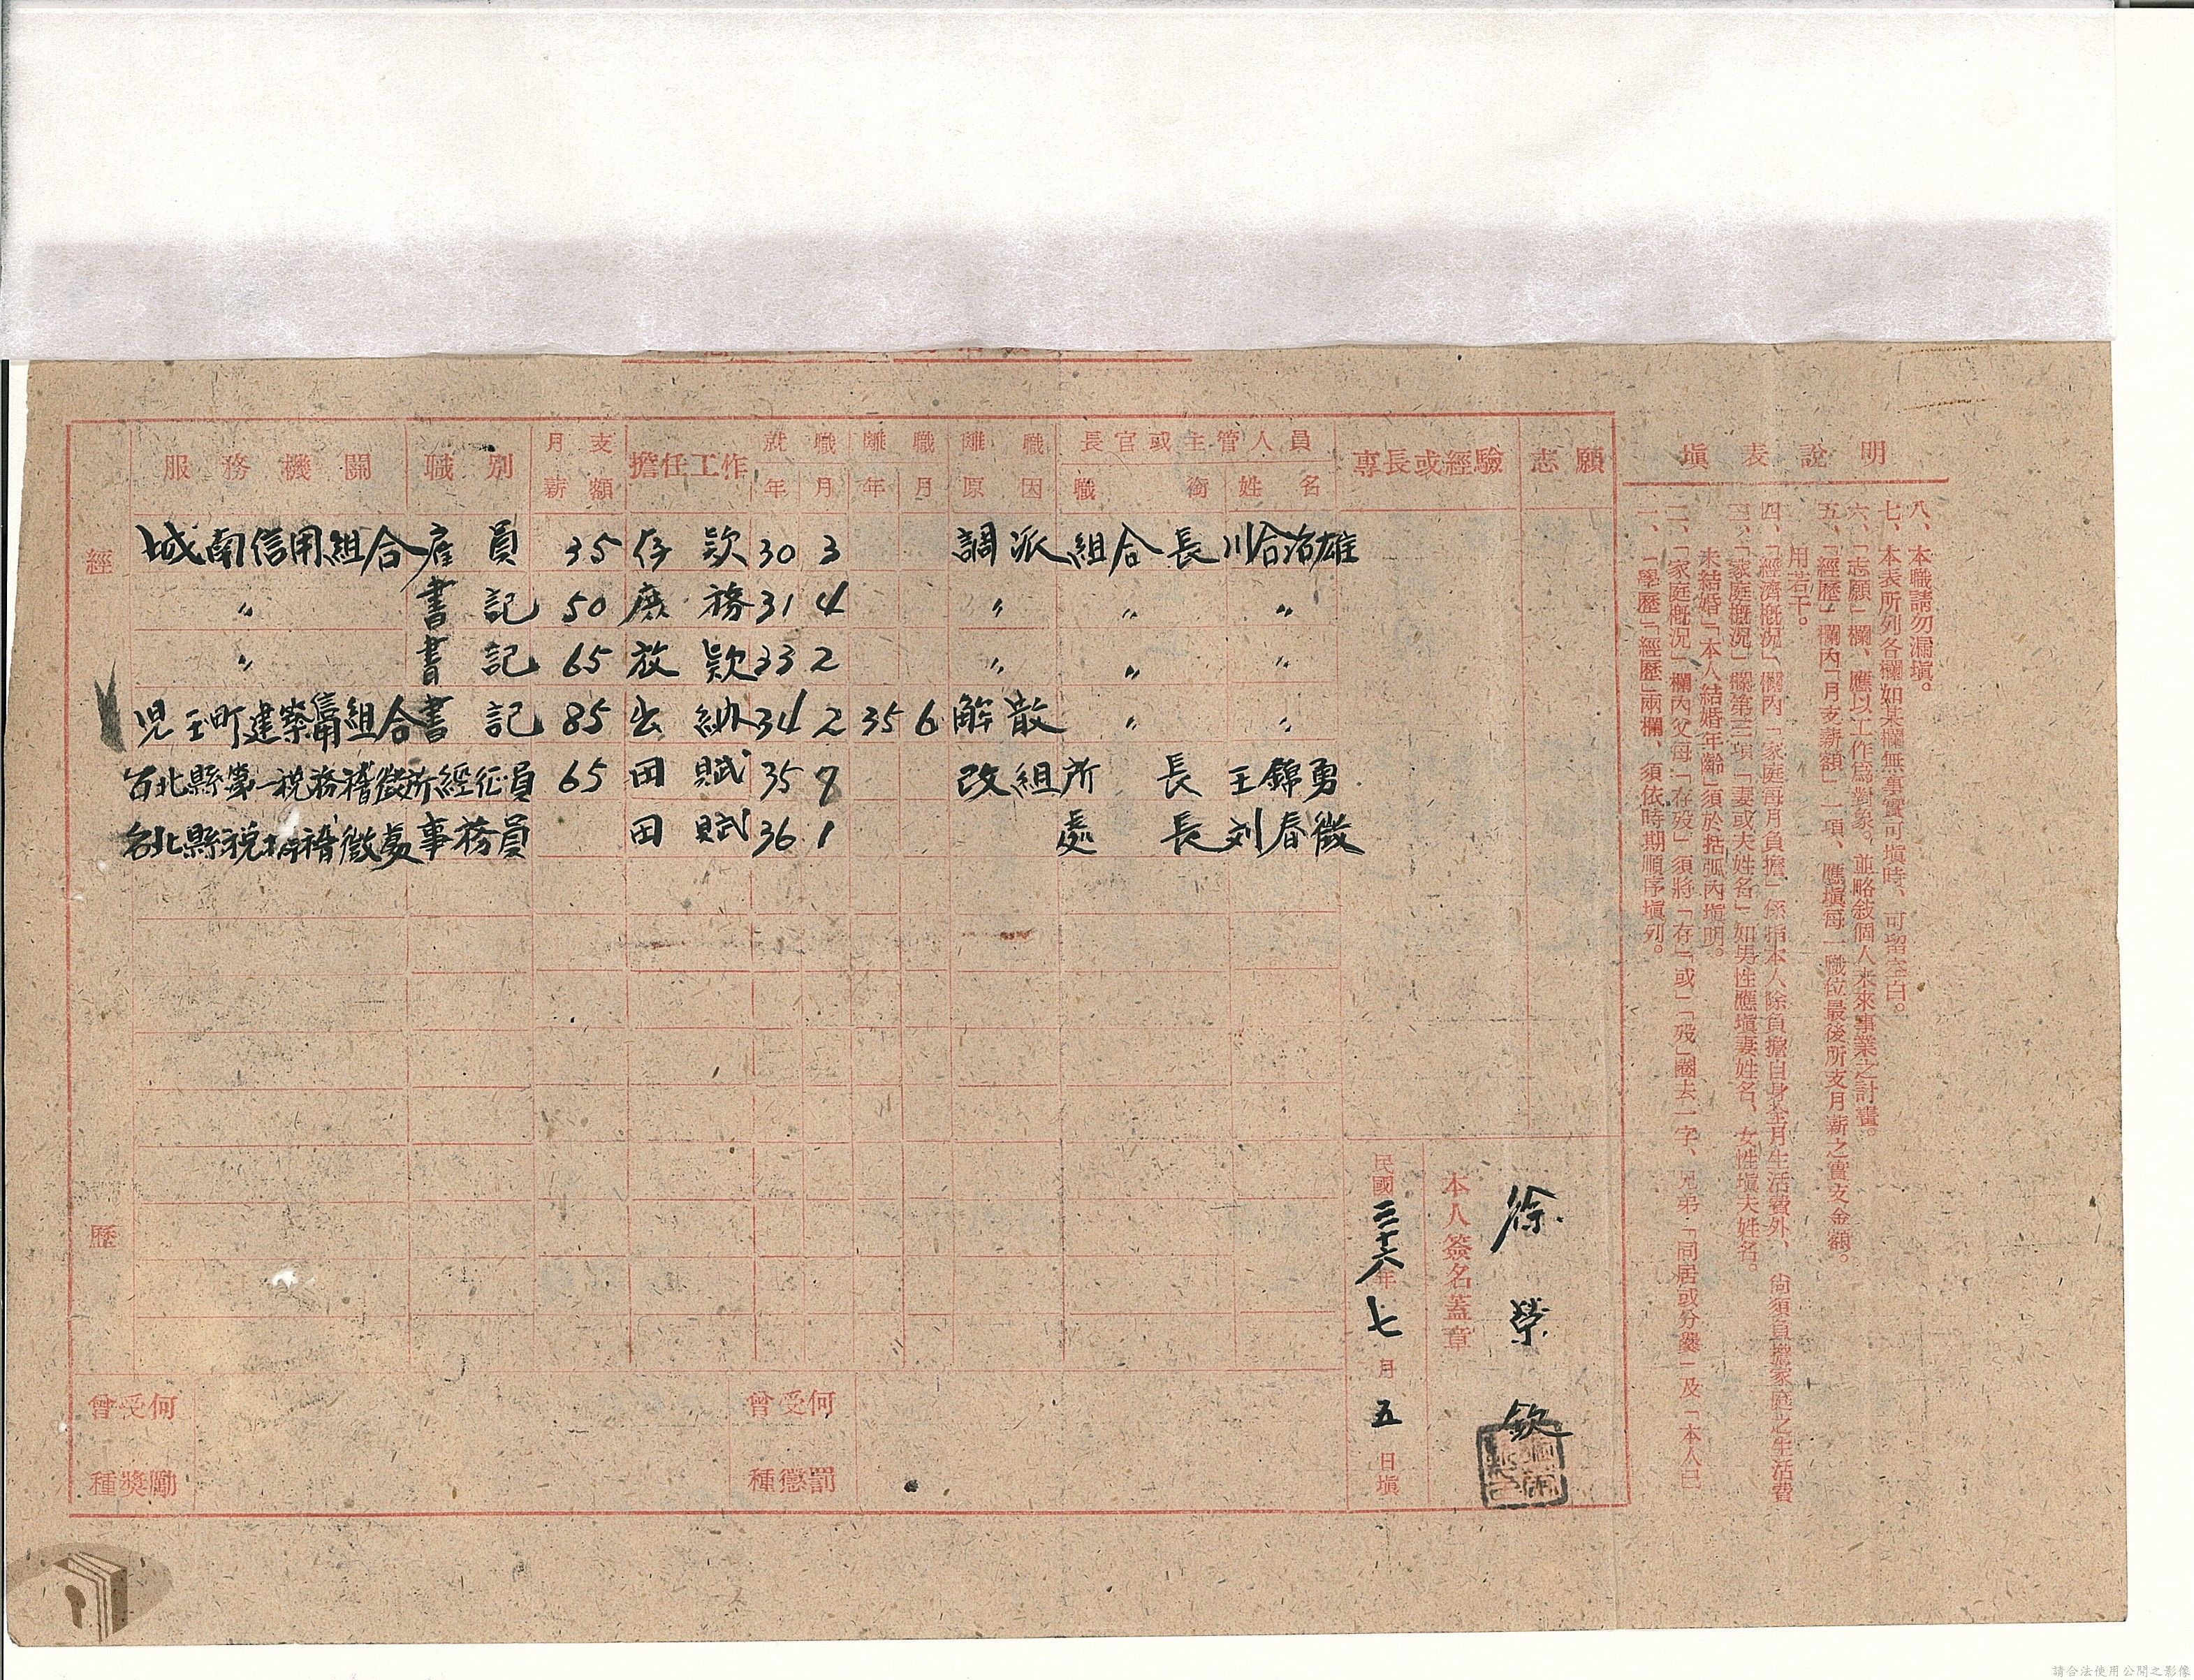 服務機關 職別 月支薪額 擔任工作 就職年月 離職年月 離職原因 長官或主管人員 職銜 姓名 專長或經驗 志願
經歷
城南信用組合 雇員 35 存款 30 3 調派 組合長 川合治雄
〃 書記 50 庶務 31 4 〃 〃 〃
〃 書記 65 放款 33 2 〃 〃 〃
児玉町建築信用組合 書記 85 出納 34 2 35 6 解散 〃 〃
台北縣第一稅務稽徵所 經征員 65 田賦 35 7 改組 所長 王錦勇
台北縣稅捐稽徵處 事務員 田賦 36 1 處長 刘春徵
曾受何種獎勵
曾受何種懲罰
民國三十六年七月五日填
本人簽名蓋章
徐榮欽
填表說明
一、「學歷」「經歷」兩欄、須依時期順序填列。
二、「家庭概況」欄內父母「存歿」須將「存」或「歿」圈去一字、兄弟「同居或分爨」及「本人已
未結婚」「本人結婚年齡」須於括弧內填明。
三、「家庭概況」欄第三項「妻或夫姓名」如男性應填妻姓名、女性填夫姓名。
四、「經濟概況」欄內「家庭每月負擔」係指本人除負擔自身全月生活費外、尚須負擔家庭之生活費
用若干。
五、「經歷」欄內「月支薪額」一項、應填每一職位最後所支月薪之實支金額。
六、「志願」欄、應以工作為對象。並略敍個人未來事業之計畫。
七、本表所列各欄如某欄無事實可填時、可留空白。
八、本職請勿漏填。
請合法使用公開之影像